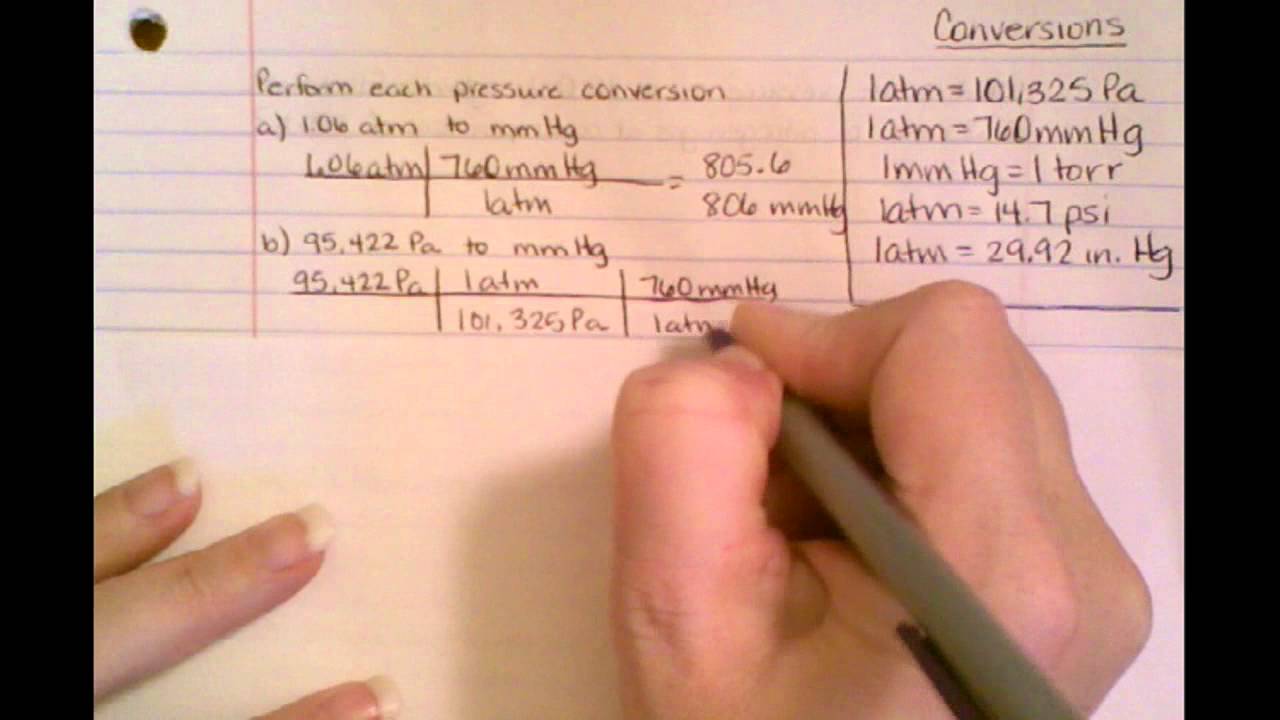 Conversions
1atm = 101,325 Pa
1atm = 760mmHg
1mmHg = 1 torr
1atm = 14.7 psi
1atm = 29.92 in. Hg
Perform each pressure conversion
a) 1.06 atm to mmHg
1.06atm | 760mmHg = 805.6
1atm 806 mmHg
b) 95,422 Pa to mmHg
95,422 Pa | 1atm | 760mmHg
101,325 Pa | 1atm